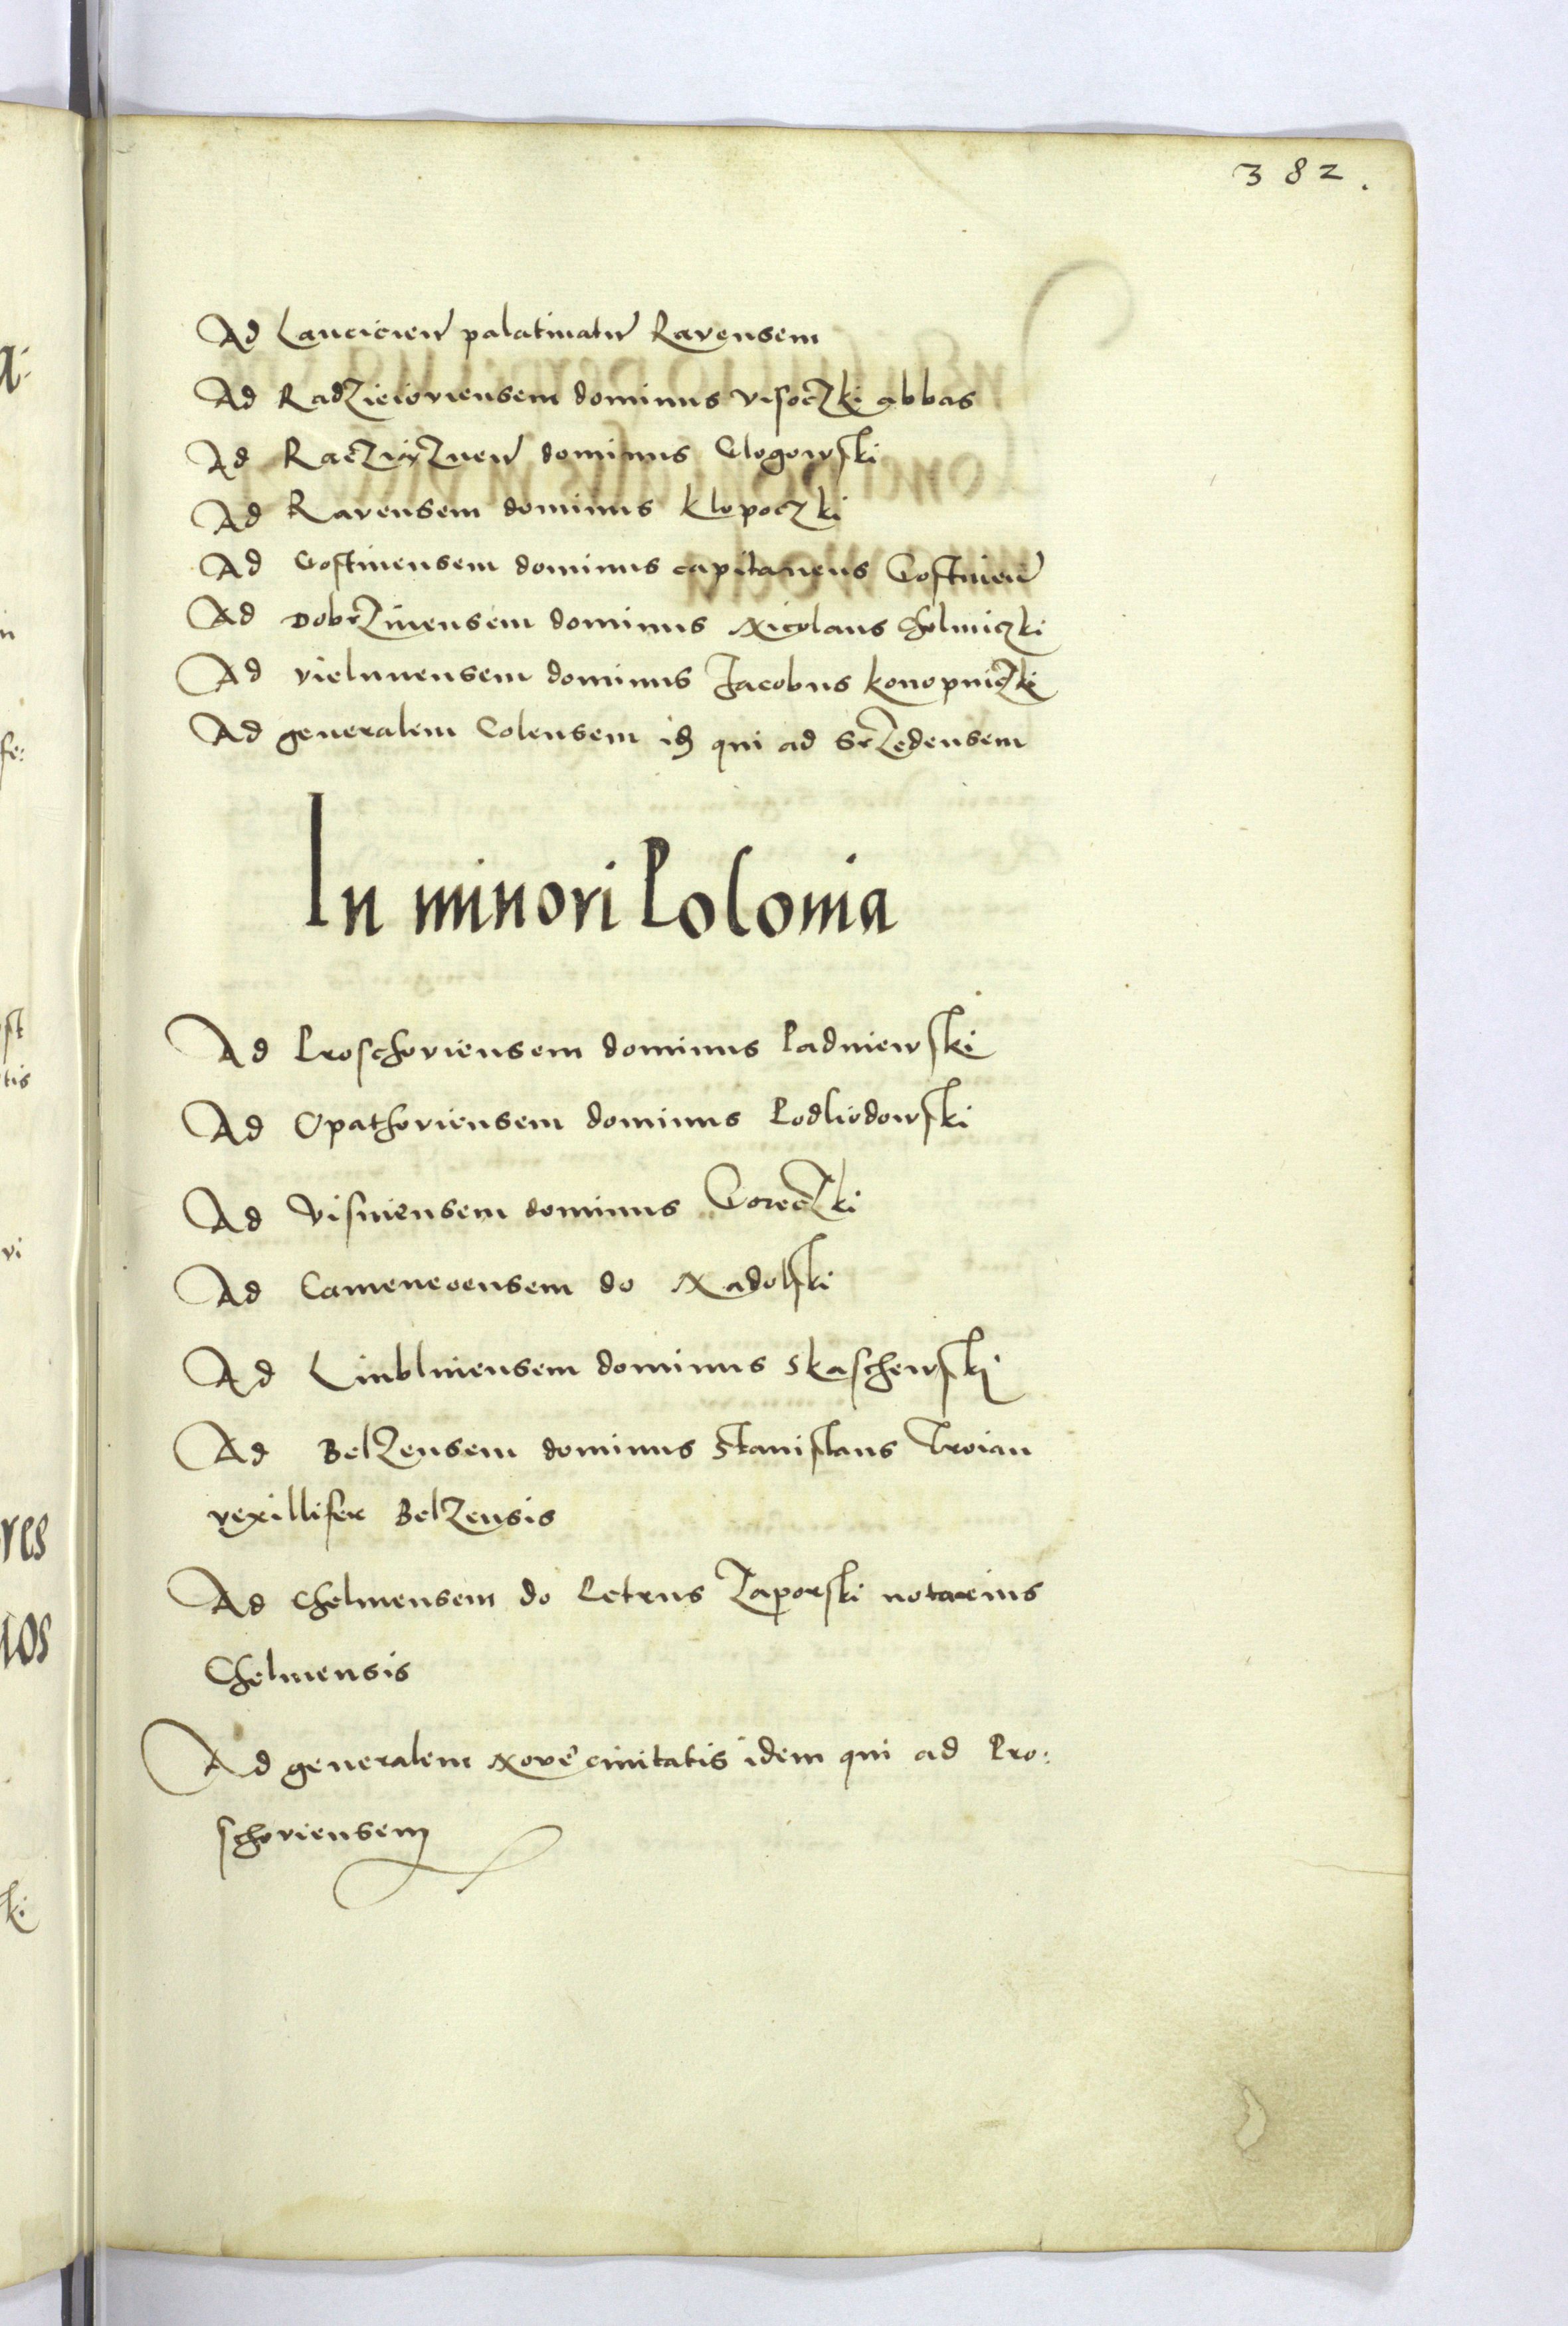 382.
Ad Lancicien palatinatu Ravensem
Ad Radzieioviensem dominus Visoczki abbas
Ad Racziąznen dominus Glogowski
Ad Ravensem dominus Klopoczki
Ad Gostinensem dominus capitaneus Gostinen
Ad Dobrzinensem dominus Nicolaus Cholmiczki
Ad vielunensem dominus Jacobus Konopniczki
Ad generalem Colensem id qui ad Srzedensem
In minori Polonia
Ad Proschoviensem dominus Padniewski
Ad Opathoviensem dominus Podliodowski
Ad Visniensem dominus Goreczki
Ad Camenecensem do Nadolski
Ad Liublinensem dominus Skaschewski
Ad Belzensem dominus Stanislaus Troian
vexillifer Belzensis
Ad Chelmensem do Petrus Zaporski notarius
Chelmensis
Ad generalem Nove civitatis idem qui ad Pro:
schoviensem